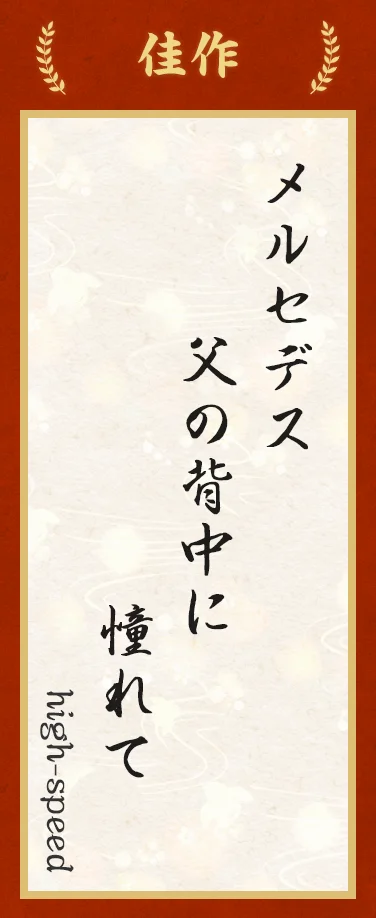 佳作
メルセデス
父の背中に
憧れて
high-speed